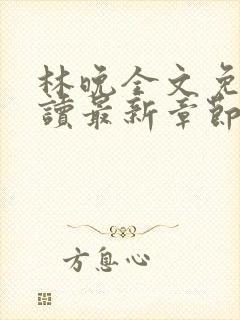 林晚全文免
讀最新章節
方息心